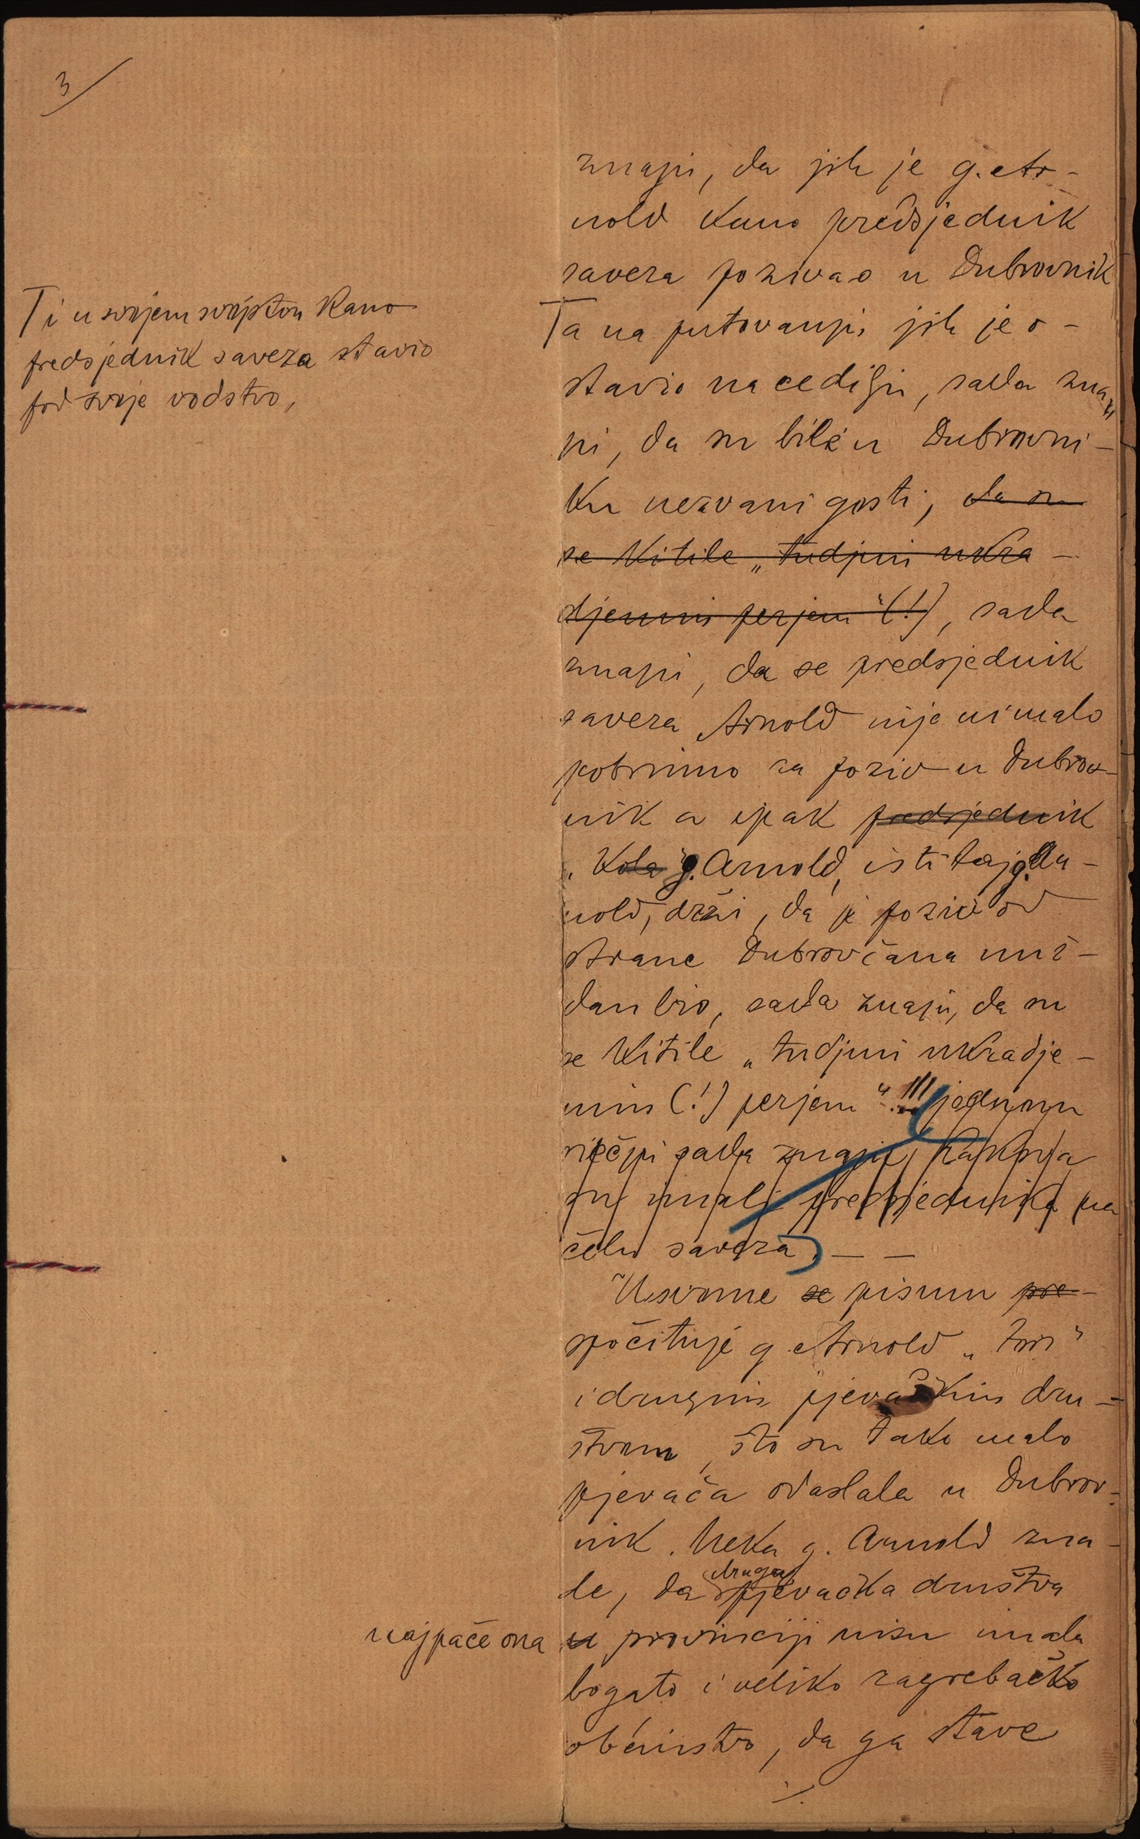 3
znaju, da jih je g. Ar-
nold kano predsjednik
saveza pozivao u Dubrovnik
Ti u svojem svojstvu kano
predsjednik saveza stavio
pod svoje vodstvo,
Ta na putovanju jih je o-
stavio na cedilju, sada zna
ju, da su bile u Dubrovni-
ku nezvani gosti, da su
se kitile „tudjim ukra-
djenim perjem“ (!), sada
znaju, da se predsjednik
saveza Arnold nije ni malo
pobrinuo za poziv u Dubrov-
nik a ipak predsjednik
„Kola“ g. Arnold, isti taj g. Ar-
nold, drži, da je poziv od
strane Dubrovčana nuž-
dan bio, sada znaju, da su
se kitile „tudjim ukradje-
nim (!) perjem“ !!! jednom
riečju sada znaju, kakova
su imali predsjednika na
čelu saveza. — —
U svome se pismu pre-
spočituje g. Arnold „Zori“
i drugim pjevačkim dru-
štvom, što su tako malo
pjevača odaslala u Dubrov-
nik. Neka g. Arnold zna-
de, da druga pjevačka društva
najpače ona u provinciji nisu imala
bogato i veliko zagrebačko
obćinstvo, da ga stave
./.